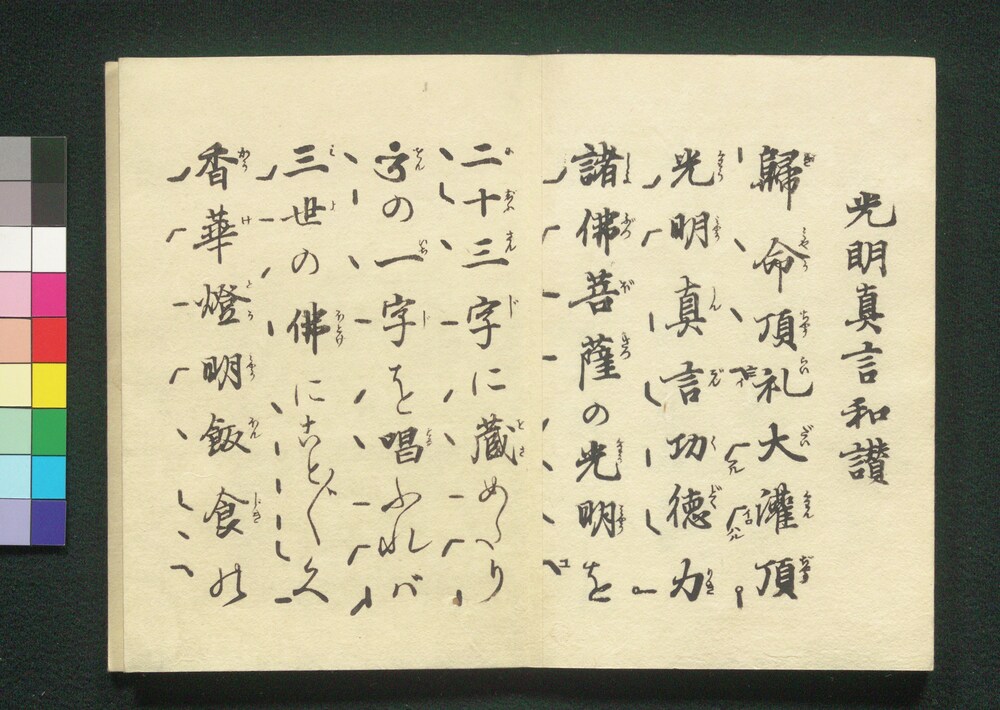 光明真言和讃
歸命頂礼大灌頂
光明真言功徳力
諸佛菩薩の光明を
二十三字に蔵めたり
の一字を唱ふれバ
三世の佛にこと〴〵く
香華燈明飯食の